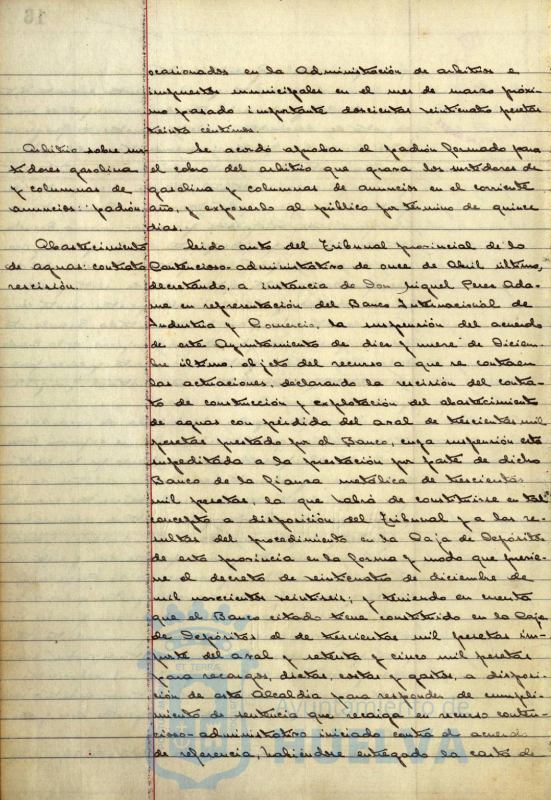 16
ocasionados en la Administración de arbitrios e
impuestos municipales en el mes de marzo próxi-
mo pasado importante doscientas veinticuatro pesetas
treinta céntimos.
Arbitrio sobre sur-
tidores gasolina
y columnas de
anuncios: padrón.
Se acordó aprobar el padrón formado para
el cobro del arbitrio que grava los surtidores de
gasolina y columnas de anuncios en el corriente
año, y exponerlo al público por término de quince
días.
Abastecimiento
de aguas: contrato
rescisión.
Leido auto del Tribunal provincial de lo
Contencioso-administrativo de once de Abril último,
decretando, a instancia de Don Miguel Peres Ada-
me en representación del Banco Internacional de
Industria y Comercio, la suspensión del acuerdo
de este Ayuntamiento de diez y nueve de Diciem-
bre último, objeto del recurso a que se contraen
las actuaciones, declarando la rescisión del contra-
to de construcción y explotación del abastecimiento
de aguas con pérdida del aval de trescientas mil
pesetas prestado por el Banco, cuya suspensión está
supeditada a la prestación por parte de dicho
Banco de la fianza metálica de trescientas
mil pesetas, la que habrá de constituirse en tal
concepto a disposición del Tribunal y a las re-
sultas del procedimiento en la Caja de Depósitos
de esta provincia en la forma y modo que previe-
ne el decreto de veinticuatro de diciembre de
mil novecientos veintiseis; y teniendo en cuenta
que el Banco citado tiene constituido en la Caja
de Depósitos el de trescientas mil pesetas im-
porte del aval y setenta y cinco mil pesetas
para recargos, dietas, costas y gastos, a disposi-
ción de esta Alcaldía para responder de cumpli-
miento de sentencia que recaiga en recurso conten-
cioso-administrativo iniciado contra el acuerdo
de referencia, habiéndose entregado la carta de
Ayuntamiento de
HUELVA